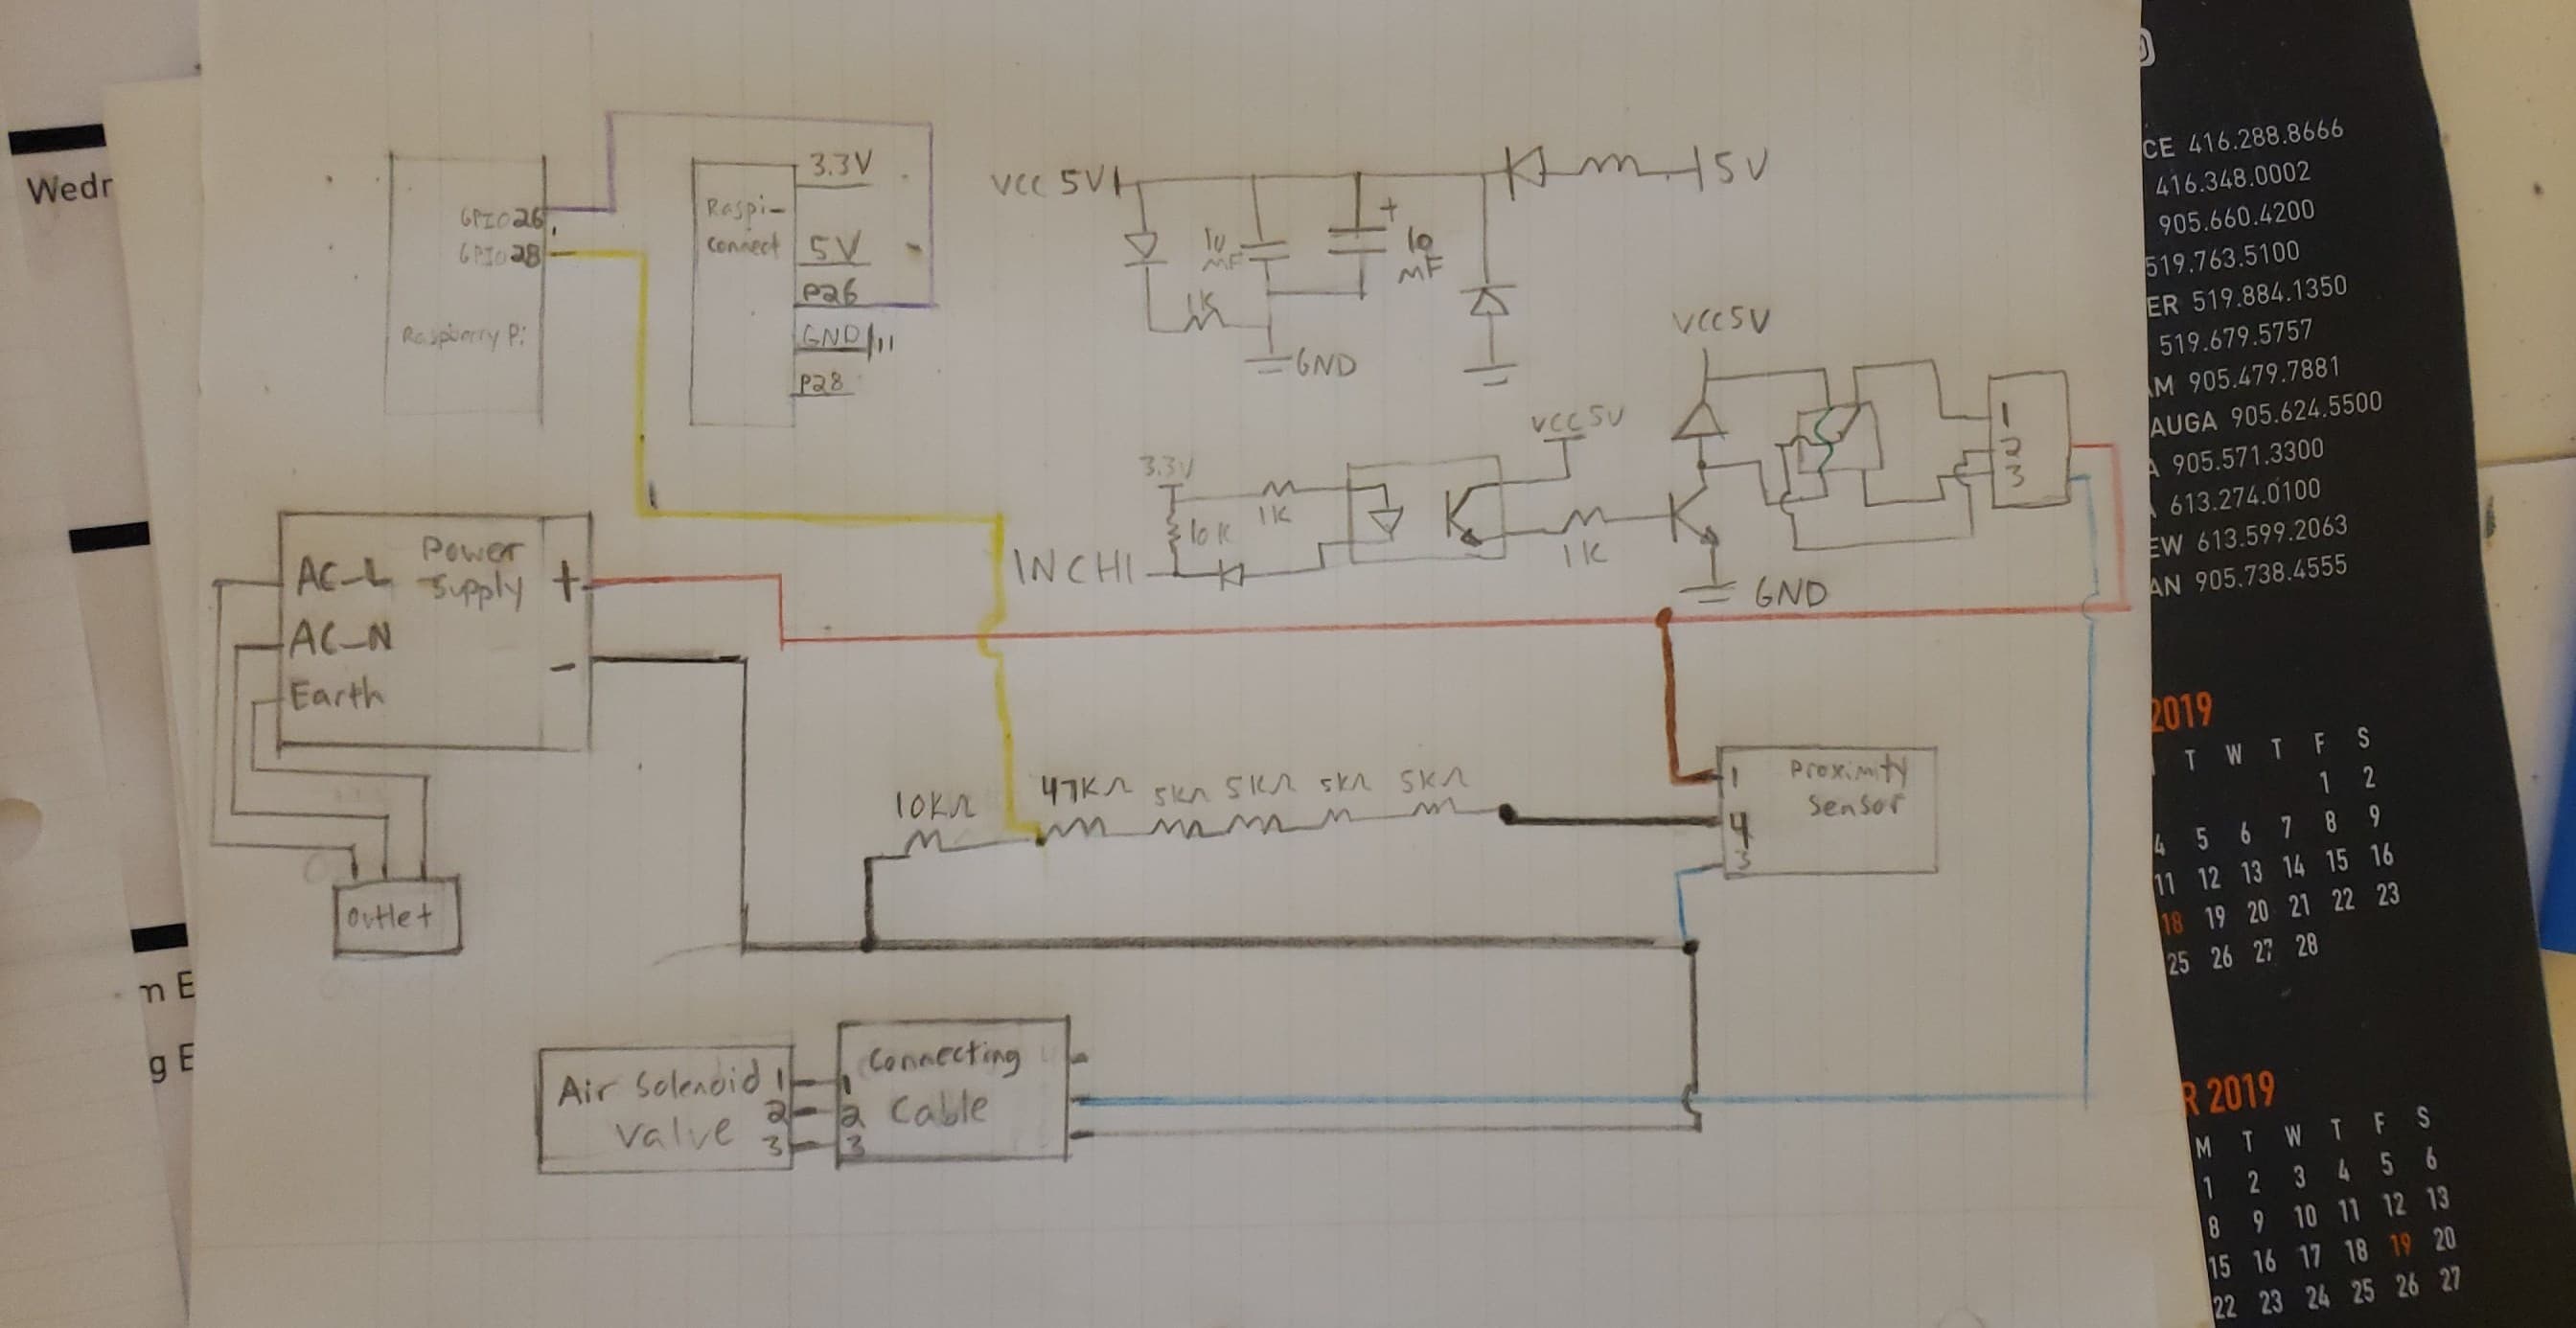 Wedr
n E
g E
GPIO26
GPIO28
Raspberry Pi
Raspi-
connect
3.3V
5V
P26
GND
P28
VCC 5V
5V
1K
10
MF
10
MF
+
GND
3.3V
10K
1K
INCH1
VCC5V
1K
VCC5V
GND
1
2
3
AC-L
AC-N
Earth
Power
Supply
+
-
Outlet
10KΩ
47KΩ 5KΩ 5KΩ 5KΩ 5KΩ
1
4
3
Proximity
Sensor
Air Solenoid
Valve
1
2
3
1
2
3
Connecting
Cable
CE 416.288.8666
416.348.0002
905.660.4200
519.763.5100
ER 519.884.1350
519.679.5757
AM 905.479.7881
AUGA 905.624.5500
A 905.571.3300
613.274.0100
EW 613.599.2063
AN 905.738.4555
2019
T W T F S
1 2
4 5 6 7 8 9
11 12 13 14 15 16
18 19 20 21 22 23
25 26 27 28
R 2019
M T W T F S
1 2 3 4 5 6
8 9 10 11 12 13
15 16 17 18 19 20
22 23 24 25 26 27